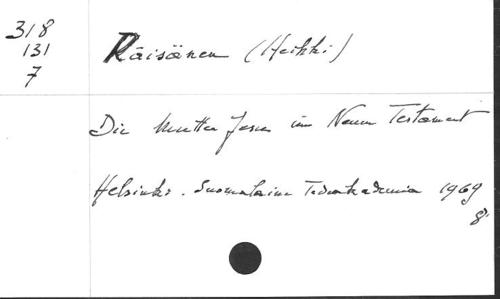 318
131
7
Räisänen (Heikki)
Die Mutter Jesu im Neuen Testament
Helsinki. Suomalainen Tiedeakatemia 1969
8°